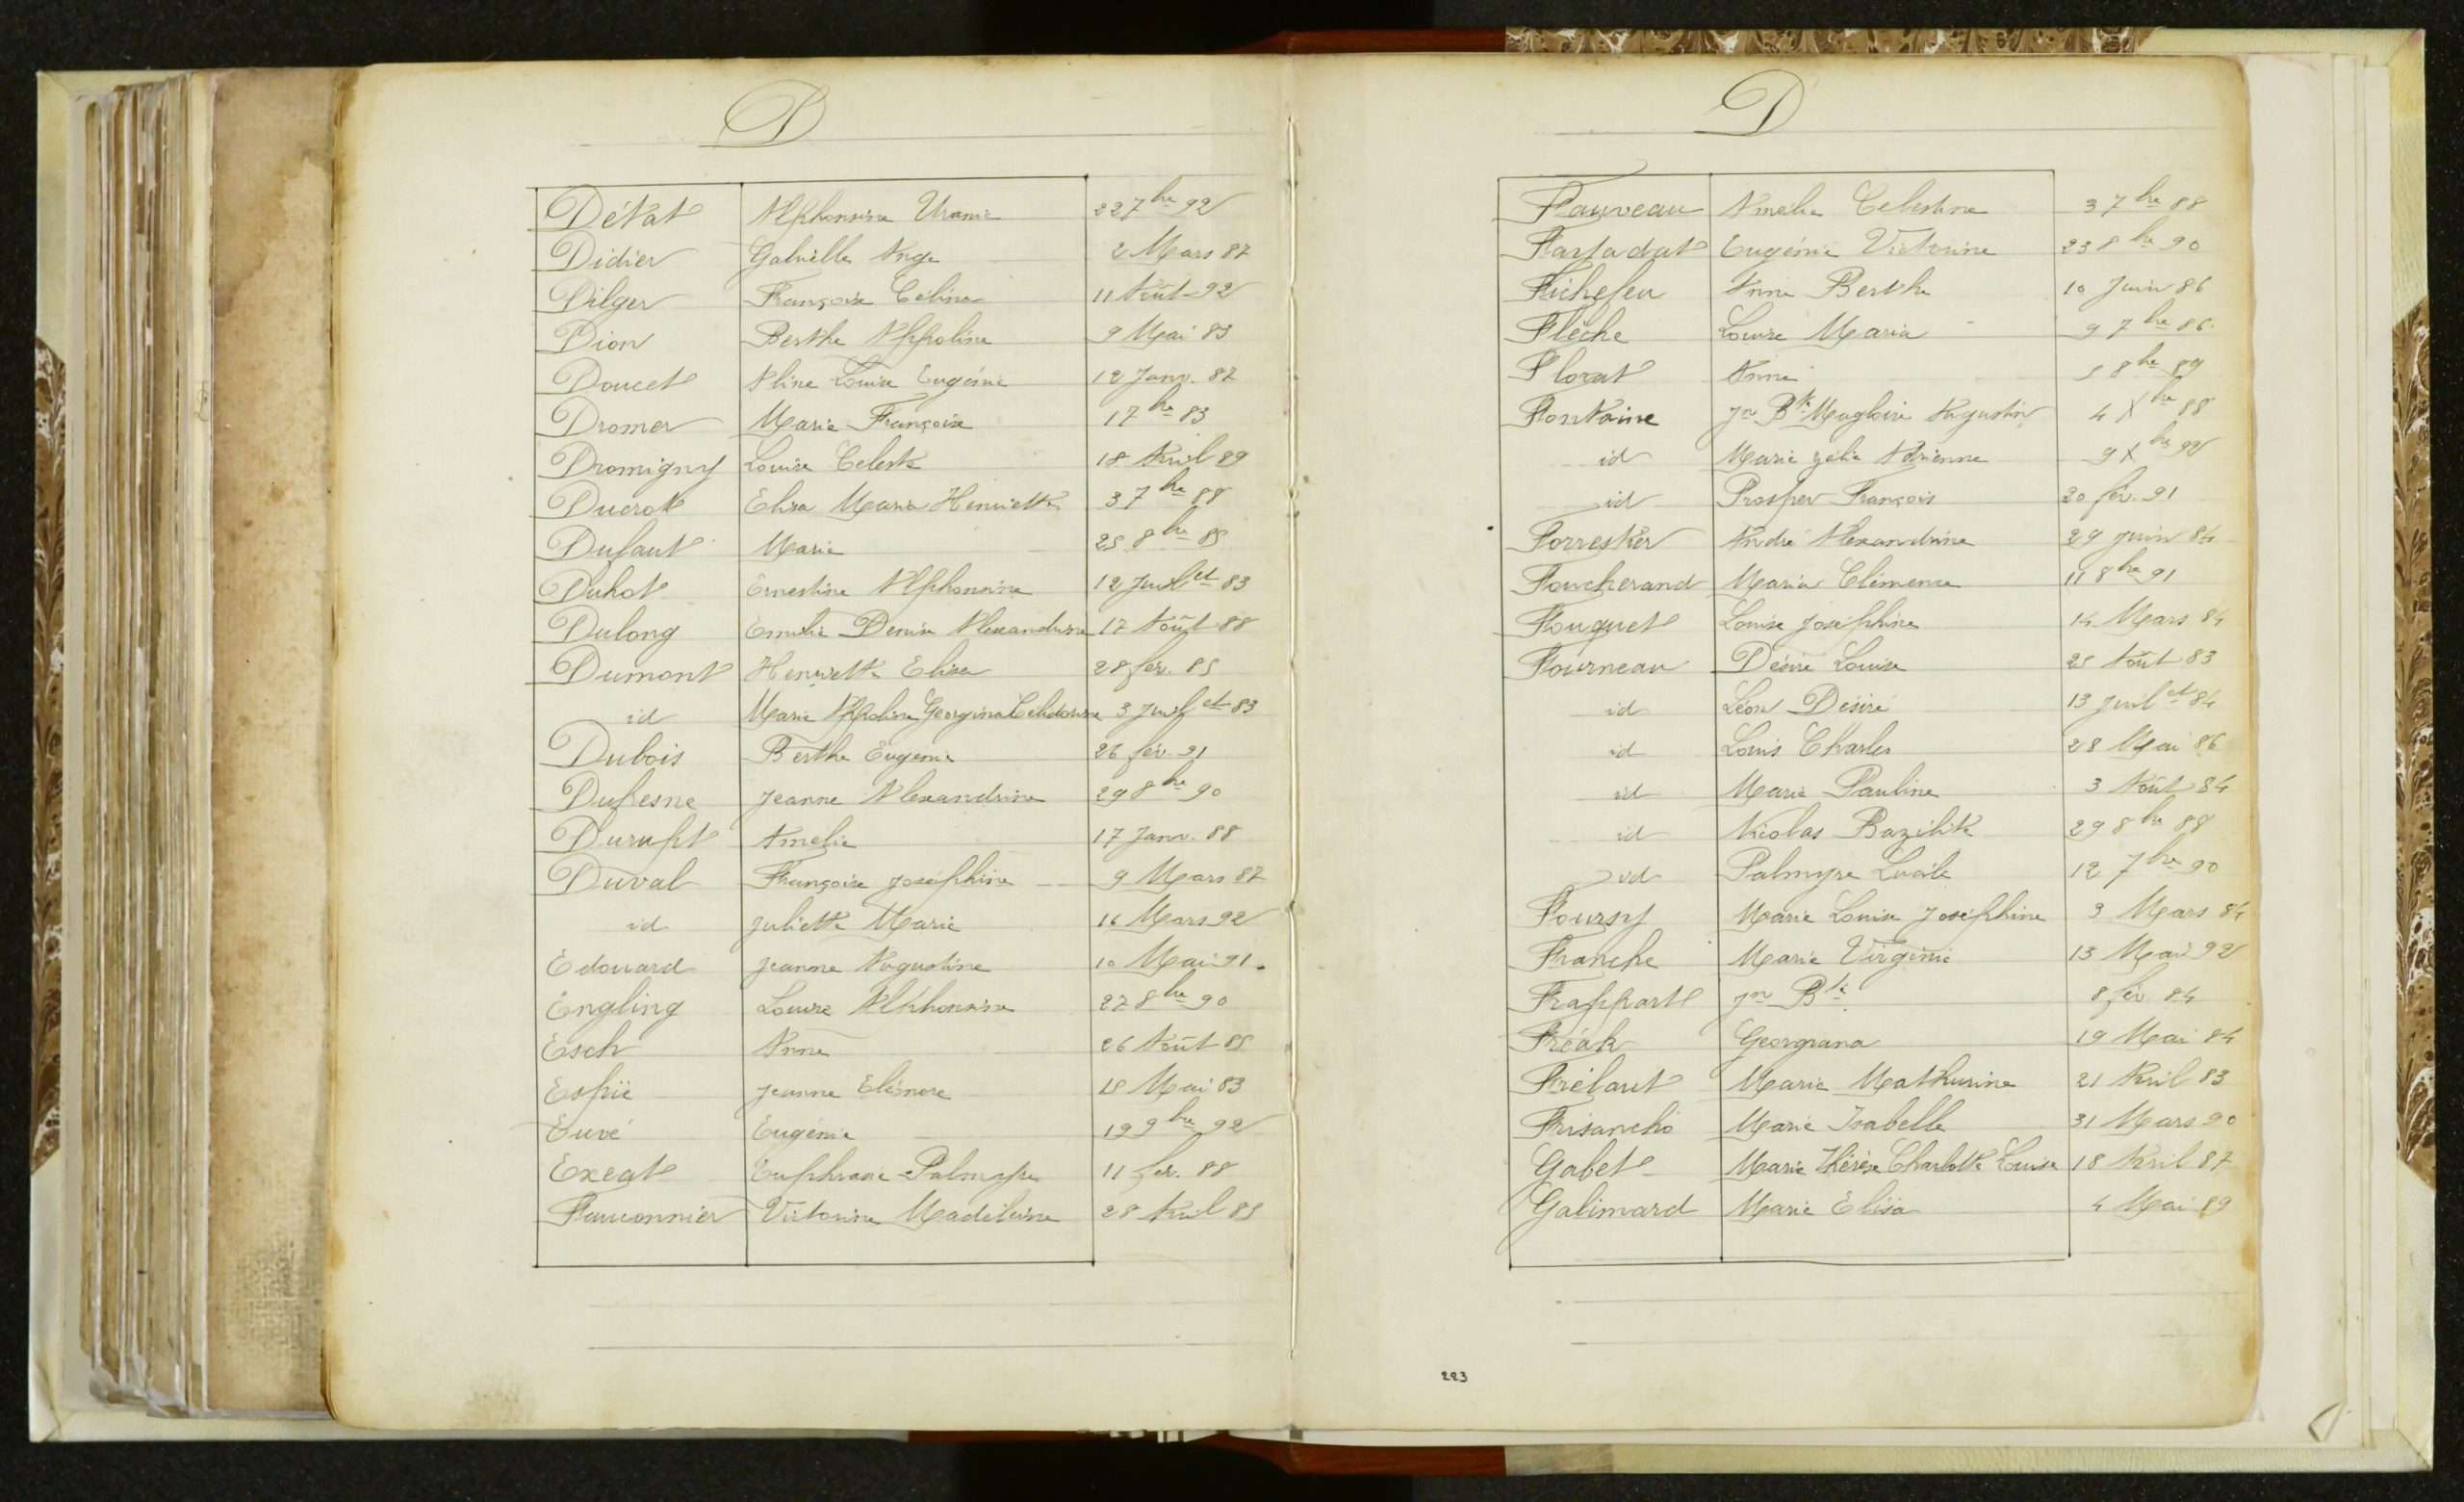 D
Détat Alphonsine Uranie 22 7bre 92
Didier Gabrielle Ange 2 Mars 87
Dilger Françoise Céline 11 Août 92
Dion Berthe Appoline 9 Mai 83
Doucet Aline Louise Eugénie 12 Janv. 87
Dromer Marie Françoise 1 7bre 83
Dromigny Louise Celeste 18 Avril 89
Ducrot Elisa Maria Henriette 3 7bre 88
Dufaut Marie 25 8bre 85
Duhot Ernestine Alphonsine 12 Juillet 83
Dulong Emilie Denise Alexandrine 17 Août 88
Dumont Henriette Elisa 28 fév. 85
id Marie Appoline Georgina Celidonine 3 Juillet 83
Dubois Berthe Eugénie 26 fév. 91
Dufresne Jeanne Alexandrine 29 8bre 90
Durupt Amélie 17 Janv. 88
Duval Françoise Joséphine 9 Mars 87
id Juliette Marie 16 Mars 92
Edouard Jeanne Augustine 10 Mai 91.
Engling Louise Alphonsine 27 8bre 90
Esch Anne 26 Août 85
Espié Jeanne Eléonore 18 Mai 83
Euvé Eugénie 19 9bre 92
Exeat Euphrasie Palmyre 11 fév. 88
Fauconnier Victorine Madeleine 28 Avril 85
D
Fauveau Amélie Celestine 3 7bre 88
Eugénie Victorine 23 8bre 90
Fichefeu Anne Berthe 10 Juin 86
Flêche Louise Maria 9 7bre 86
Florat Anne 5 8bre 89
Fontaine Jn Bte Magloire Augustin 4 Xbre 88
id Marie Zélie Adrienne 9 Xbre 92
id Prosper François 20 fév. 91
Forrester André Alexandrine 29 Juin 84
Foucherand Maria Clémence 11 8bre 91
Fouquet Louise Joséphine 14 Mars 84
Fourneau Désiré Louise 25 Août 83
id Léon Désiré 13 Juillet 84
id Louis Charles 28 Mai 86
id Marie Pauline 3 Août 84
id Nicolas Bazilik 29 8bre 88
id Palmyre Lucile 12 7bre 90
Foursy Marie Louise Joséphine 3 Mars 84
Franche Marie Virginie 13 Mai 92
Frappart Jn Bte 8 fév. 84
Georgiana 19 Mai 84
Frélaut Marie Mathurine 21 Avril 83
Frisancho Marie Isabelle 31 Mars 90
Gabet Marie Thérèse Charlotte Louise 18 Avril 87
Galimard Marie Elisa 4 Mai 89
223